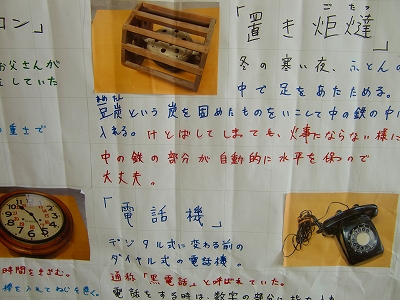 ロン」
お父さんが
していた
重さで
「置き炬燵」
こたつ
冬の寒い夜、ふとんの
中で足をあたためる。
まめたん
豆炭という炭を固めたものをいこして中の鉄の中に
入れる。けとばしてしまっても、火事にならない様に
中の鉄の部分が自動的に水平を保つので
大丈夫。
時間をきざむ。
棒を入れてねじを巻く。
「電話機」
デジタル式に変わる前の
ダイヤル式の電話機。
通称「黒電話」と呼ばれていた。
電話をする時は、数字の部分に指を入れ